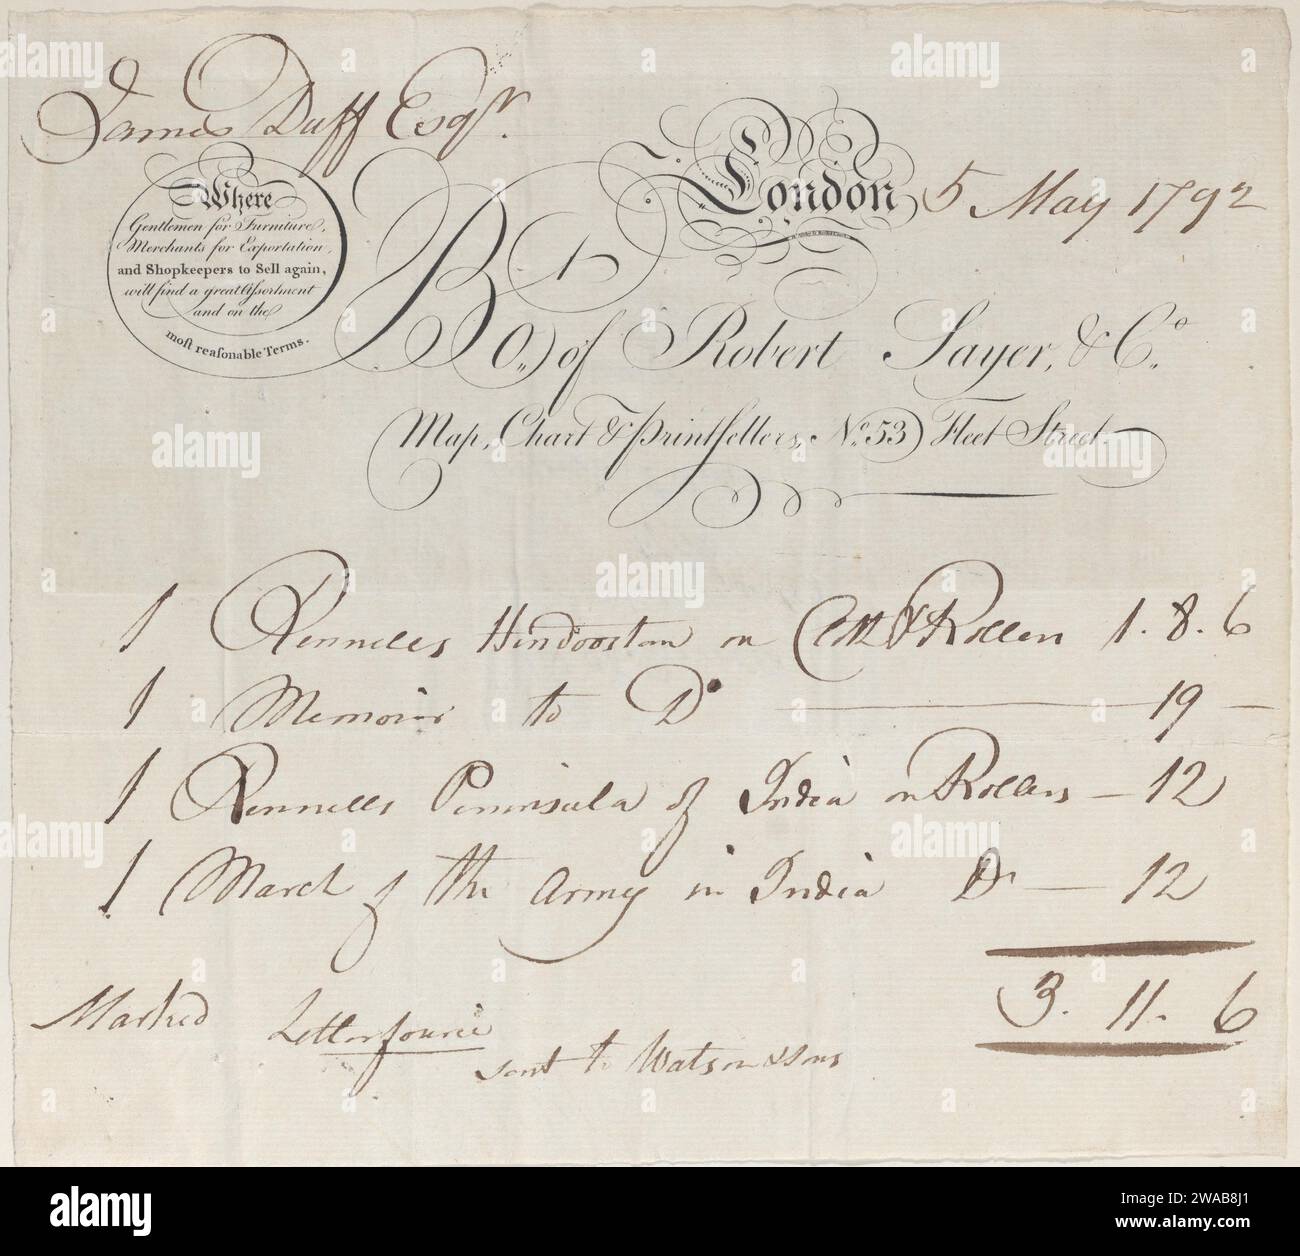 James Duff Esqr.
London 5 May 1792
Where
Gentlemen for Furniture,
Merchants for Exportation,
and Shopkeepers to Sell again,
will find a great Aſsortment
and on the
moſt reaſonable Terms.
Bt
Bo,, of Robert Sayer, & Co.
Map, Chart & Printſellers, No. 53 Fleet Street.
1 Rennells Hindoostan on Cloth & Rollers 1. 8. 6
1 Memoir to Do 19 —
1 Rennells Peninsula of India on Rollers — 12
1 March of the Army in India Do — 12
3. 11. 6
Marked Letterfourie
sent to Watson & Sons
alamy
Image ID: 2WAB8J1
www.alamy.com